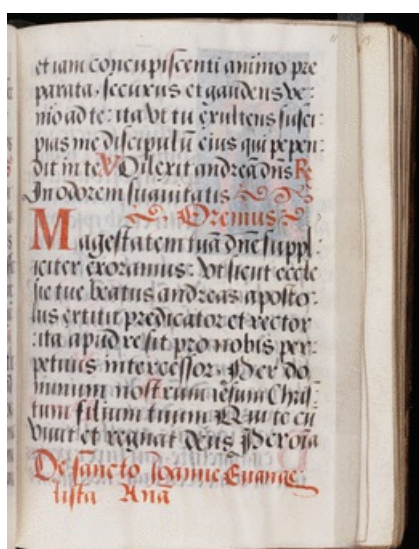 et iam concupiscenti animo pre
parata. securus et gaudens ve:
nio ad te: ita vt tu exultens susci:
pias me discipulū eius qui pepen:
dit in te V Dilexit andreā dn̄s R̄
In odorem suauitatis
Oremus
Magestatem tuā dn̄e suppl:
iciter exoramus: Vt sicut eccle
sie tue beatus andreas aposto:
lus extitit predicator et rector
:ita apud te sit pro nobis per:
petuus intercessor. Per do
minum nostrum iesum Chris:
tum filium tuum Qui te cū
viuit et regnat deus Per oīa
De sancto Joanne Euange
lista Ana